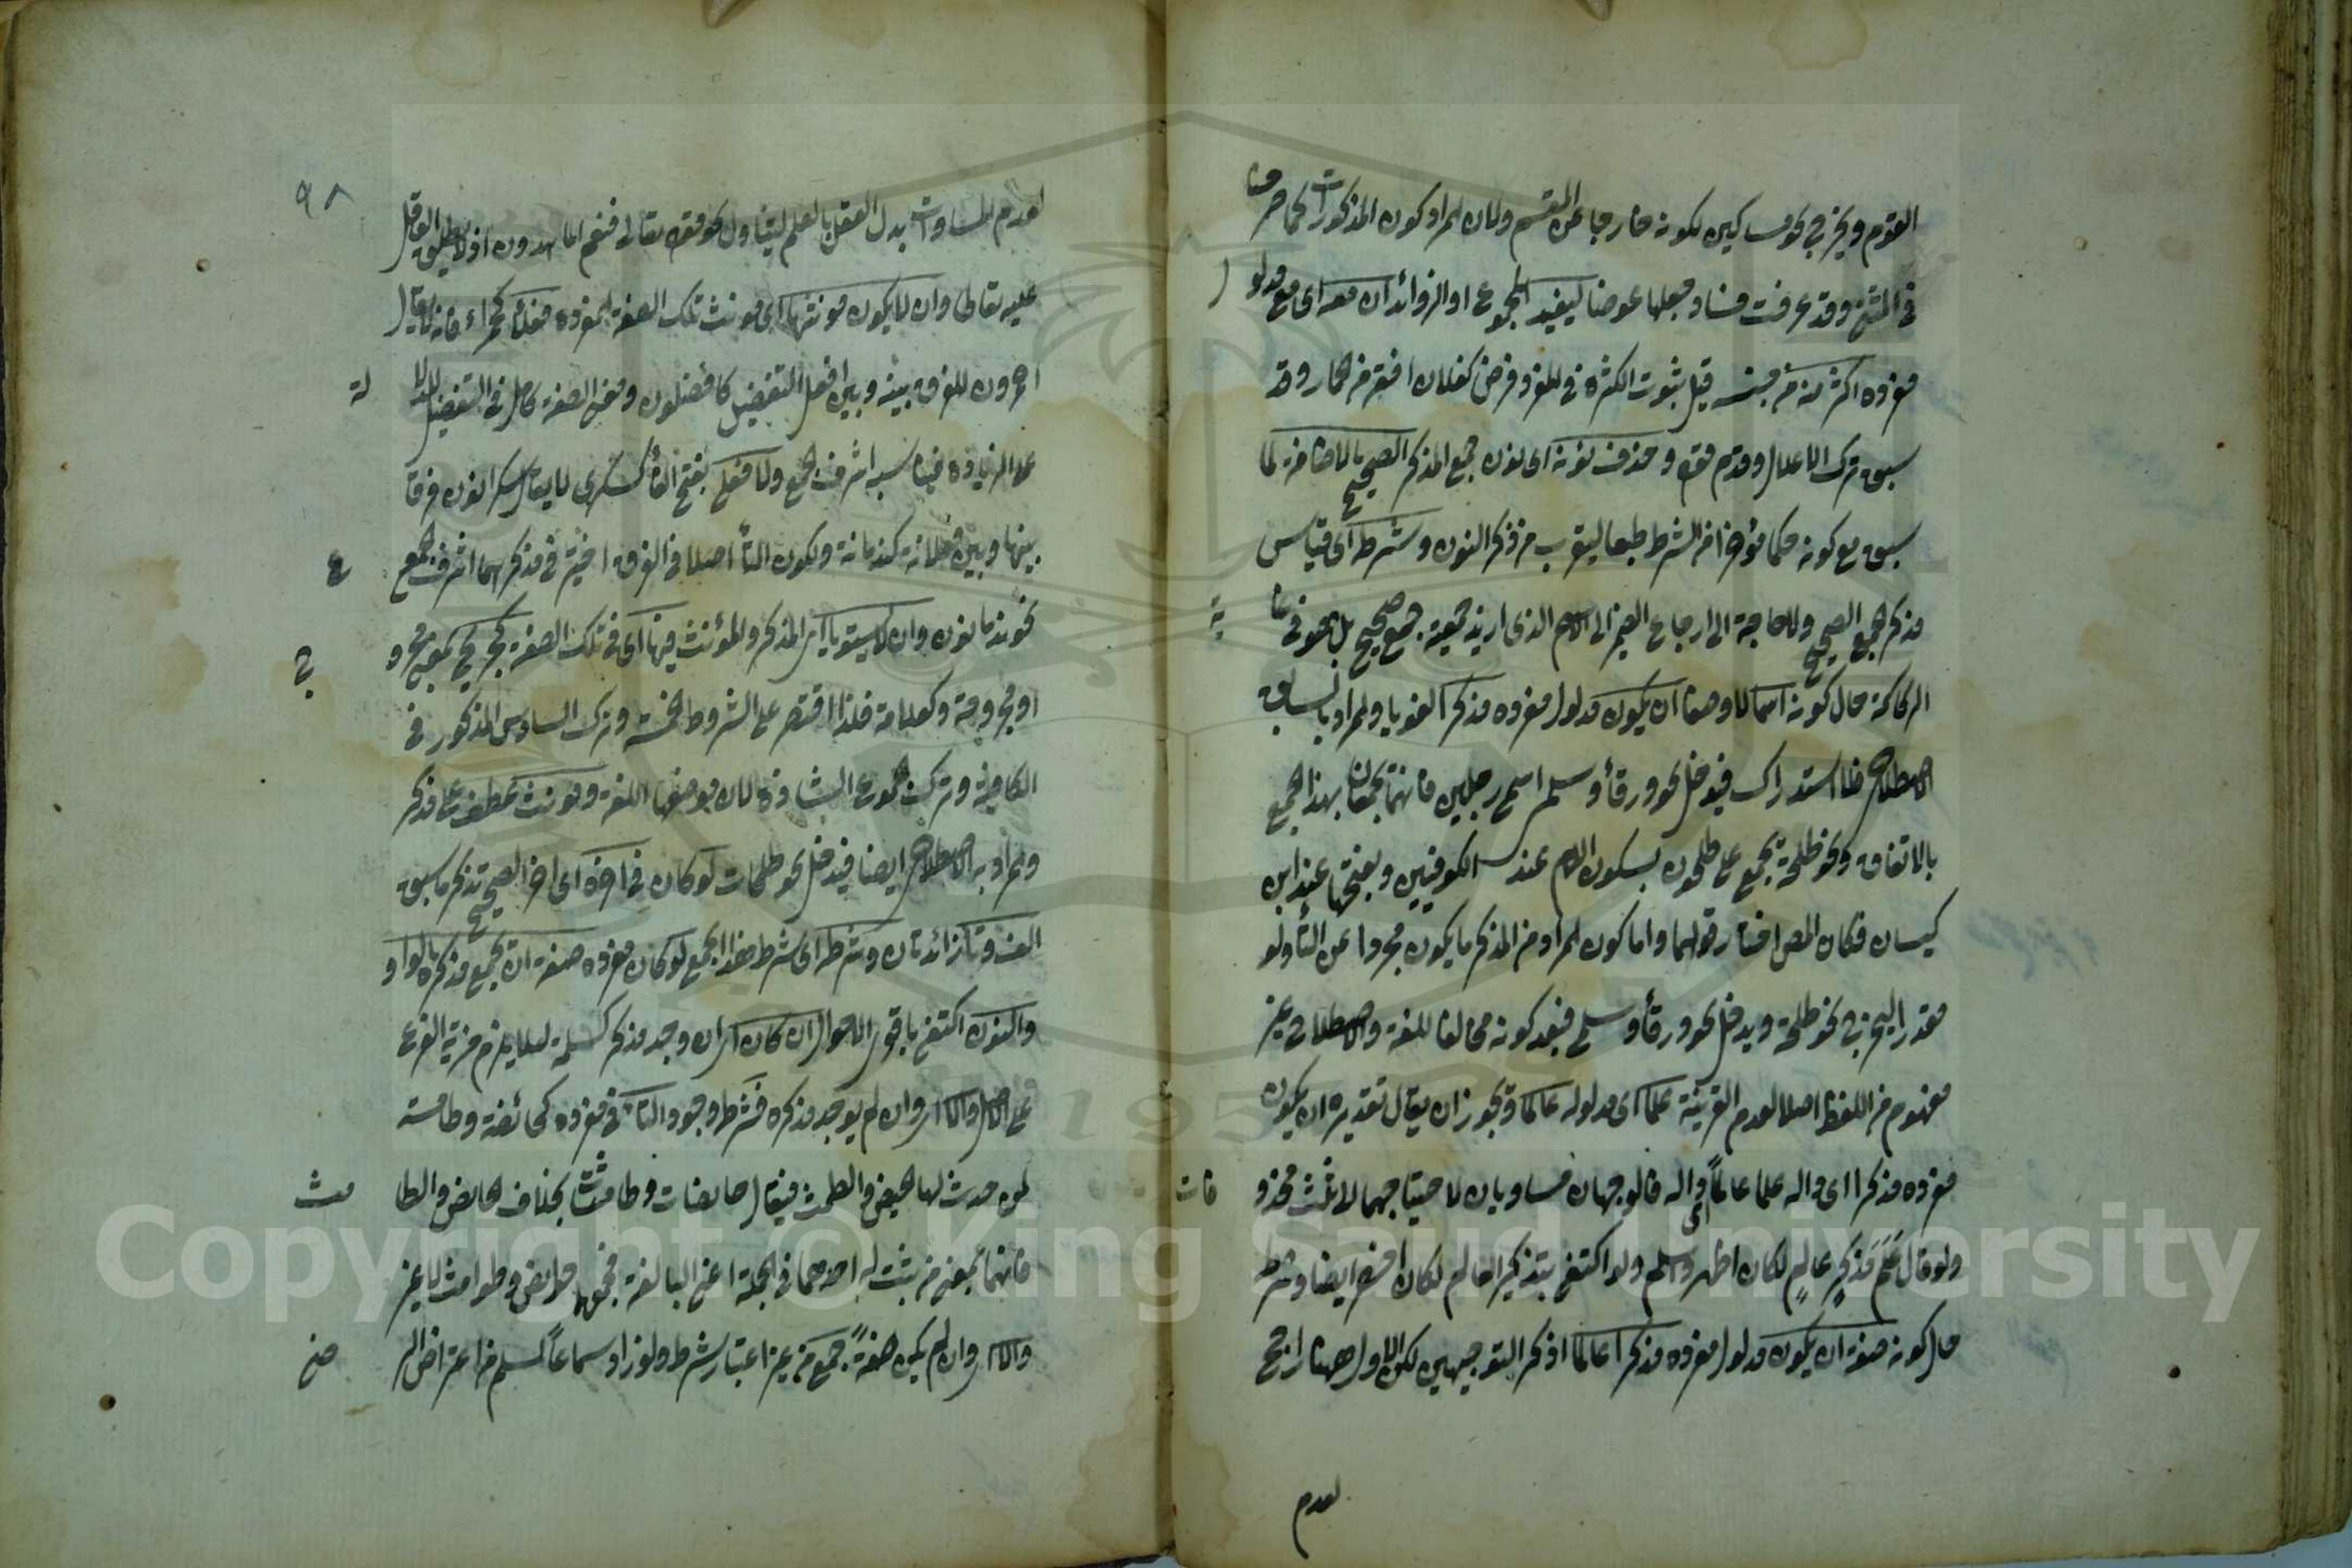 القوم ويخرج نحو مساكين لكونه خارجا عن المقسم ولان المراد كون المذكورات كما مر
في المثنى وقد عرفت فساد جعلها عوضا ليفيد المجموع او الزوائد ان معه اى مع مدلول
مفرده اكثر منه من جنسه قيل ثبوت الكثرة في المفرد فرضى كفلان افقه من الحمار وقد
سبق ترك الاعلال وقدم قوله وحذف نونه اى نون جمع المذكر الصحيح بالاضافة لما
سبق مع كونه حكما مؤخرا من الشرط طبعا ليقرب من ذكر النون وشرطه اى قياس
مذكر الجمع الصحيح ولا حاجة الى ارجاع الضمير الى الاسم الذى اريد جمعه جمع صحيح بل هو في غاية
الركاكة حال كونه اسما لا وصفا ان يكون مدلول مفرده مذكرا لغويا والمراد بالسابق
الاصطلاحى فلا استدراك فيدخل نحو ورقاء وسلمى اسمى رجلين فانهما يجمعان بهذا الجمع
بالاتفاق ونحو طلحة يجمع على طلحون بسكون اللام عند الكوفيين وبفتحها عند ابن
كيسان فكان المص اختار قولهما واما كون المراد من المذكر ما يكون مجردا عن التاء ولو
مقدرا ليخرج نحو طلحة ويدخل نحو ورقاء وسلمى فبعد كونه مخالفا للغة والاصطلاح غير
مفهوم من اللفظ اصلا لعدم القرينة علما اى مدلوله عالما ويجوز ان يقال تقديره ان يكون
مفرده مذكرا اى داله علما عالما اى داله فالوجهان مساويان لاحتياجهما لاثنث محذوفات
ولو قال علم مذكر عالم لكان اظهر واسلم ولو اكتفى بتذكير العالم لكان اخصر ايضا وشرطه
حال كونه صفة ان يكون مدلول مفرده مذكرا عالما اذكر التوجيهين لكن الاول ههنا راجح
لعدم
٩٨
لعدم المساواة بدل العقل بالعلم ليتناول نحو قوله تعالى فنعم الماهدون اذ لا يطلق العاقل
عليه تعالى وان لا يكون مؤنثها اى مؤنث تلك الصفة المفرده فعلاء كحمراء فانه لا يقال
احمرون للفرق بينه وبين افعل التفضيل كافضلون ومعنى الصفة كامل في التفضيل لدلالته
على الزيادة فيناسبه اشرف الجمع ولا فعلى بفتح الفاء كسكرى لا يقال سكرانون فرقا
بينها وبين فعلانة كندمانة ولكون التاء اصلا في الفرق اختير في مذكرهما اشرف الجمع
نحو ندمانون وان لا يستويا اى المذكر والمؤنث فيها اى في تلك الصفة كجريح بمعنى مجروح
او مجروحة وكعلامة فلذا اقتصر على الشروط الخمسة وترك السادس المذكور في
الكافية وترك الجموع الشاذة لان موضعها اللغة ومؤنث عطف على مذكر
والمراد به الاصطلاحى ايضا فيدخل نحو طلحات لو كان في اخره اى اخر الصحيح تذكر ما سبق
الف وتاء زائدتان وشرطه اى شرط هذا الجمع لو كان مفرده صفة ان يجمع مذكره بالواو
والنون اكتفى باقوى الاحوال ان كان اى ان وجد مذكر كمسلمة لئلا يلزم مزية الفرع
على الاصل والا اى وان لم يوجد مذكره فشرطه وجود التاء في مفرده كحائضة وطامثة
لمن حدث لها الحيض والطمث فيقال حائضات وطامثات بخلاف الحائض والطامث
فانهما بمعنى من يثبت له احدهما في الجملة اعنى البالغة فجمعهما حوائض وطوامث لا غير
والا اى وان لم يكن صفة جمع من غير اعتبار شرط ولو زاد سماعا لسلم من اعتراض الرضى